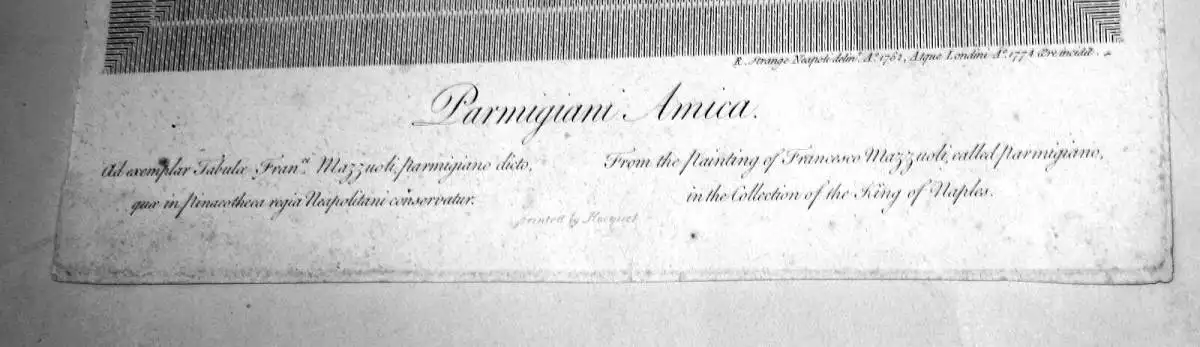 R. Strange Neapoli delin.t A.o 1762, Atque Londini A.o 1774 ære incidit.
Parmigiani Amica.
Ad exemplar Tabulæ Fran.ci Mazzuoli, parmigiano dicto,
quæ in pinacotheca regia Neapolitani conservatur.
From the Painting of Francesco Mazzuoli, called parmigiano,
in the Collection of the King of Naples.
printed by Hacquet